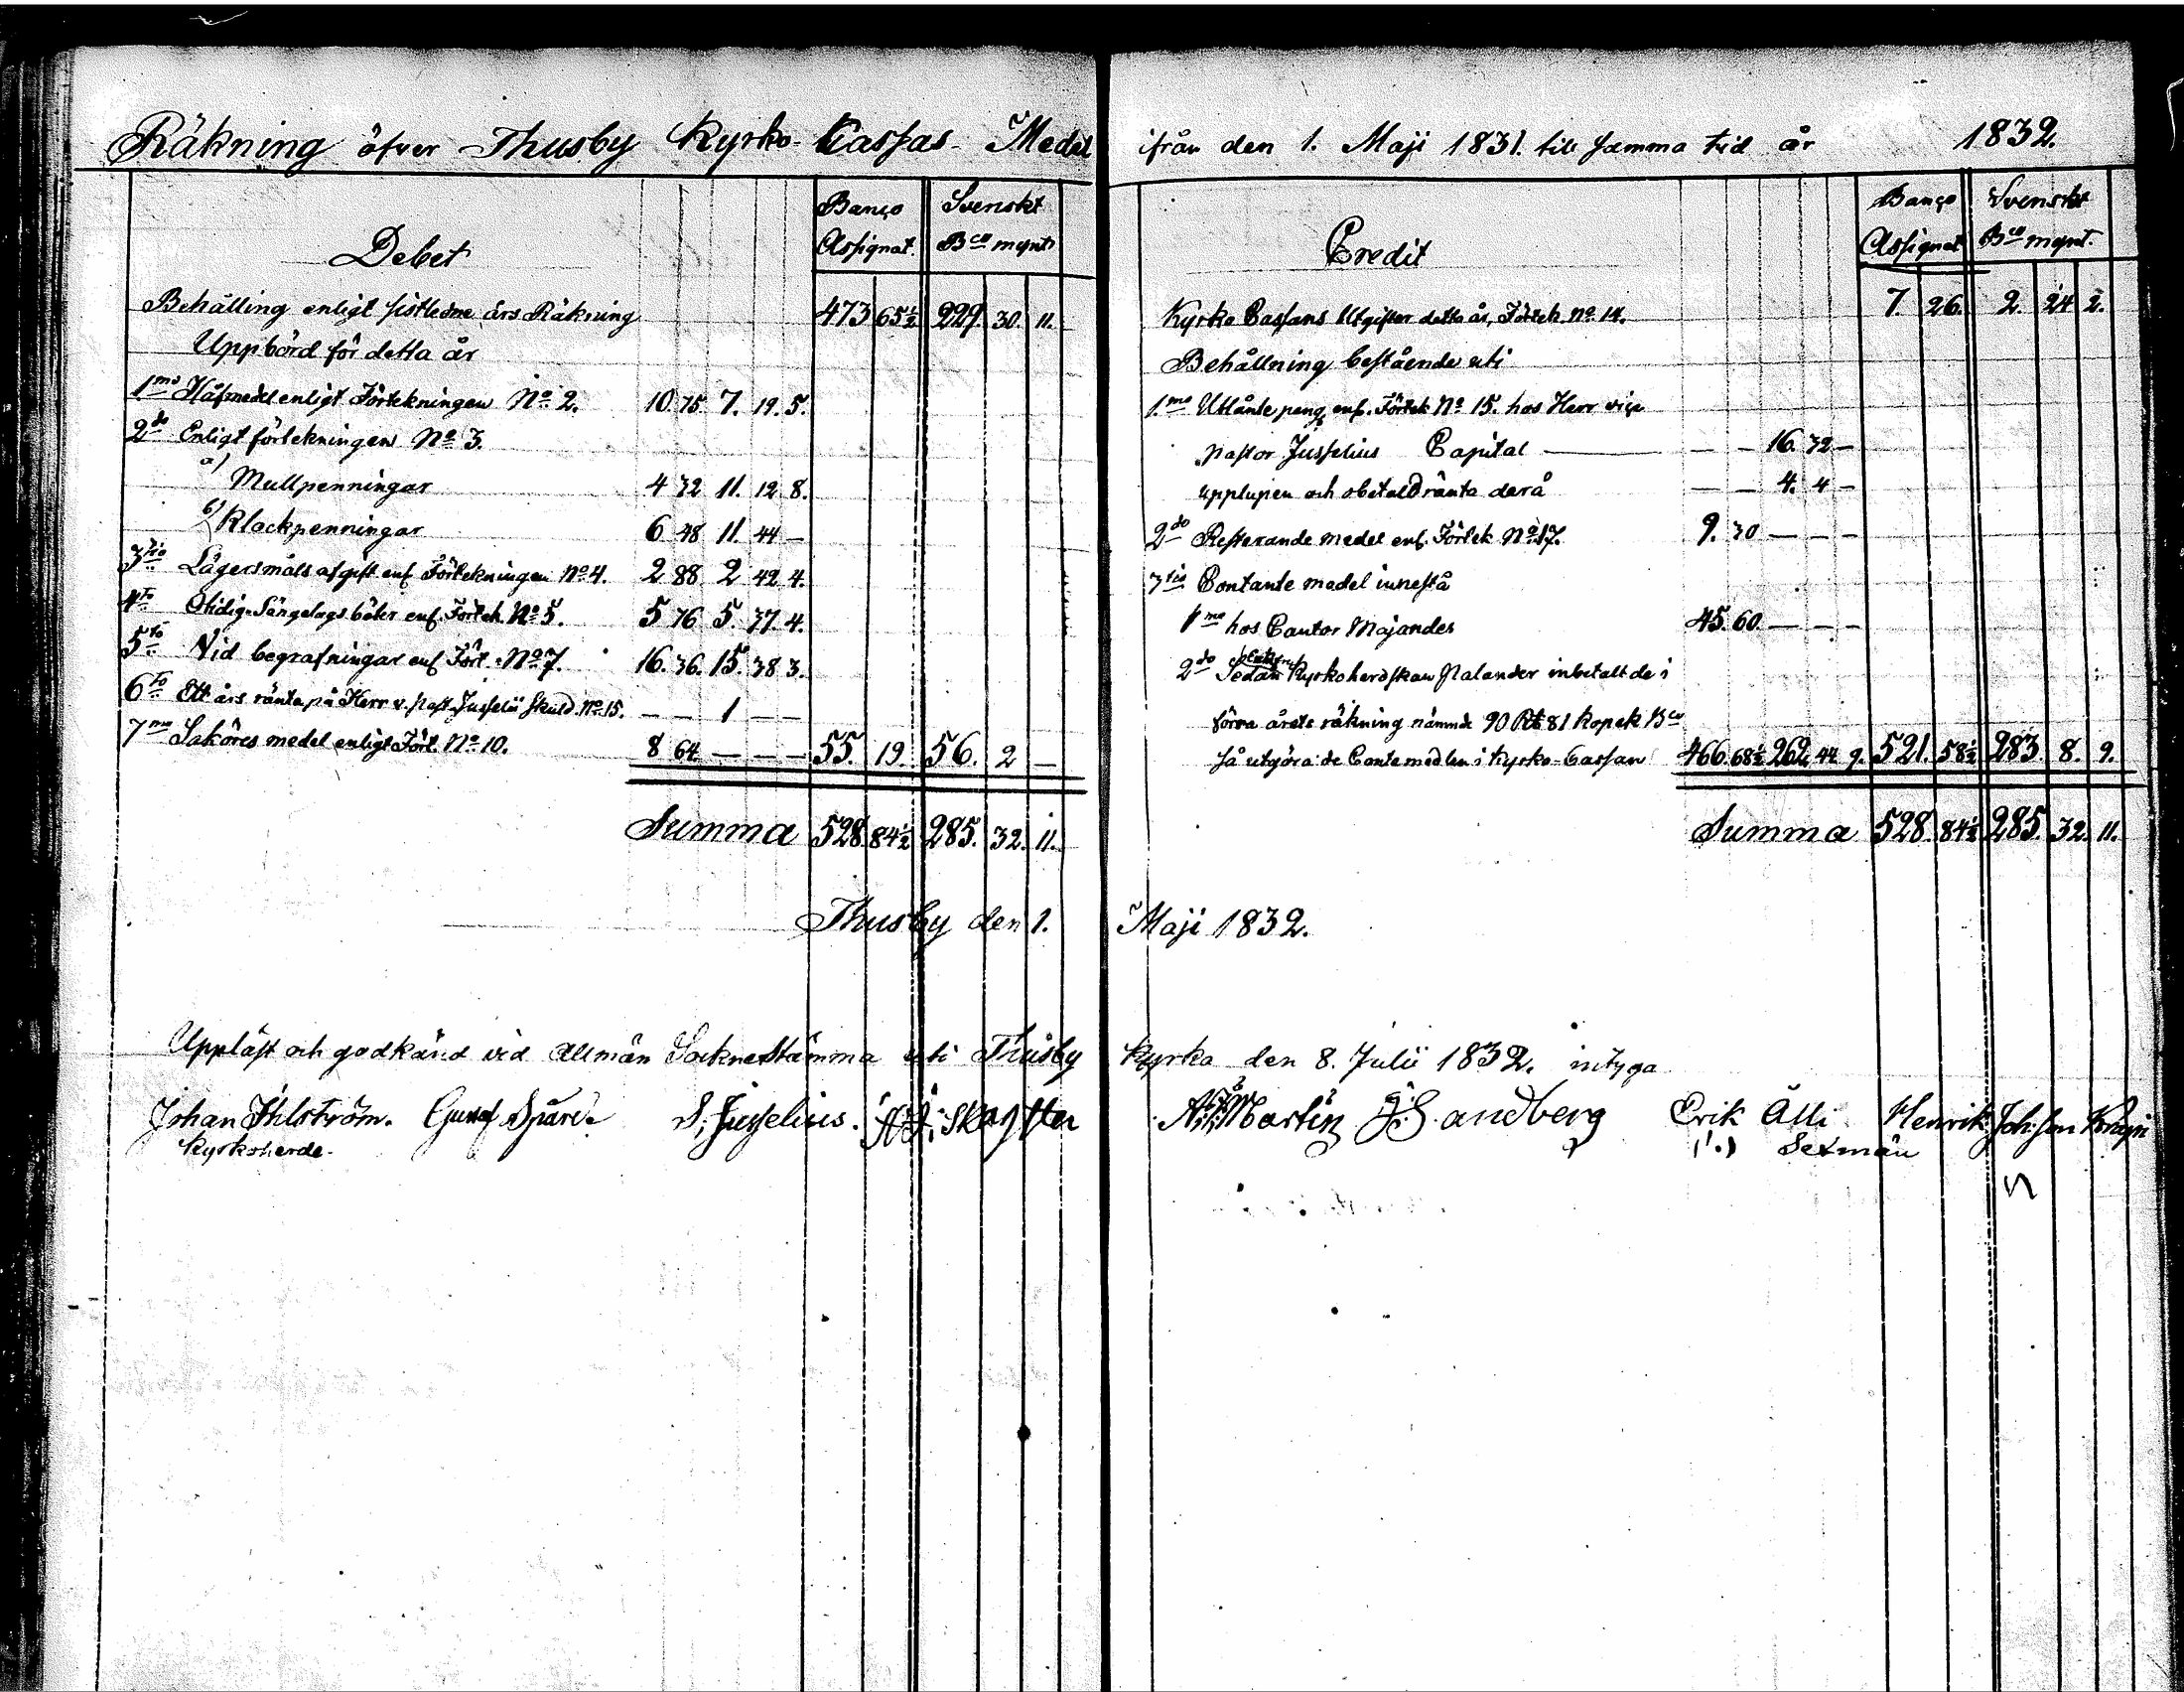 Räkning öfver Thusby Kyrko-Cassas Medel ifrån den 1. Maji 1831. till samma tid år 1832.
Debet
Banço Assignat. Svenskt Bco mynt
Behålling enligt sistledne års Räkning 473 65½ 229. 30. 11.
Uppbörd för detta år
1mo Håfmedel enligt Förtekningen No 2. 10. 75. 7. 19. 5.
2do Enligt förtekningen No 3.
a) Mullpenningar 4 32 11. 12 8.
b) Klockpenningar 6 48 11. 44 —
3tio Lägersmåls afgift enl. Förtekningen No 4. 2 88 2 42 4.
4to Otidig Sängelags böter enl. Förtek. No 5. 5 76 5. 37. 4.
5to Vid begrafningar enl. Fört. No 7. 16. 36. 15. 38 3.
6to Ett års ränta på Herr v. Past. Jusselii skuld. No 15. — — 1 — —
7mo Saköres medel enligt Fört. No 10. 8 64. — — — 55. 19. 56. 2 —
Summa 528. 84½ 285. 32. 11.
Credit
Banço Assignat Svenskt Bco mynt.
Kyrko Cassans Utgifter detta år, Förtek. No 14. 7. 26. 2. 24 2.
Behållning bestående uti
1mo Utlånte peng. enl. Förtek No 15. hos Herr vice
Pastor Jusselius Capital — — — 16. 32 —
upplupen och obetald ränta derå — — 4. 4 —
2do Resterande medel enl. Förtek No 17. 9. 30 — — —
3tio Contante medel innestå
1mo hos Cantor Majander 45. 60. — — —
2do Sedan Kyrkoherdskan Nalander inbetalt de i
förra årets räkning nämnde 90 Rb 81 kopek Bco
så utgöra de Conte medlen i Kyrko-Cassan 466. 68½ 262. 44 9. 521. 58½ 283. 8. 9.
Summa 528. 84½ 285. 32. 11.
Thusby den 1. Maji 1832.
Uppläst och godkänd vid Allmän Sockne Stämma uti Thusby Kyrka den 8. Julii 1832. intyga
Johan Ihlström. Gustaf S. Jusselius. A: Martin J. Sandberg Erik Alli Henrik Joh:son
Kyrkoherde. Sexmän